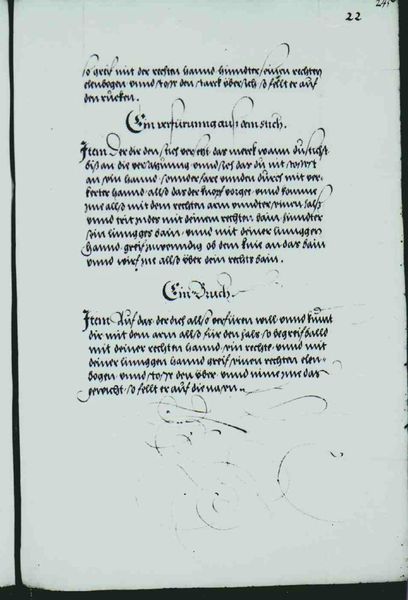 22
so greif mit der rechten hannd hinnder seinen rechten
elenbogen vnnd den ruck vbersich so fellt er auf
den rucken.
Ein verfürung auss am such.
Item Der dir den versetzt das merck wann du
biss an die vnnd das du nit
an sein hannd sonnder far vnnden durch mit ver-
kerter hannd allso das der knopf vorgee vnnd komme
jme allso mit dem rechten arm vnndter seinen hals
vnnd trit jndes mit deinem rechten bain hinndter
sein linngges bain vnnd mit deiner linnggen
hannd greif jnwenndig ob dem knie an das bain
vnnd wirf jne allso vber dein rechts bain.
Ein Bruch.
Item Auf das der dich allso verfüren will vnnd kumt
dir mit dem arm allso für den hals so begreif balld
mit deiner rechten hannd sein rechte vnnd mit
deiner linnggen hannd greif seinen rechten elen-
bogen vnnd den vber vnnd nime jme das
gewicht so fellt er auf die nasen.